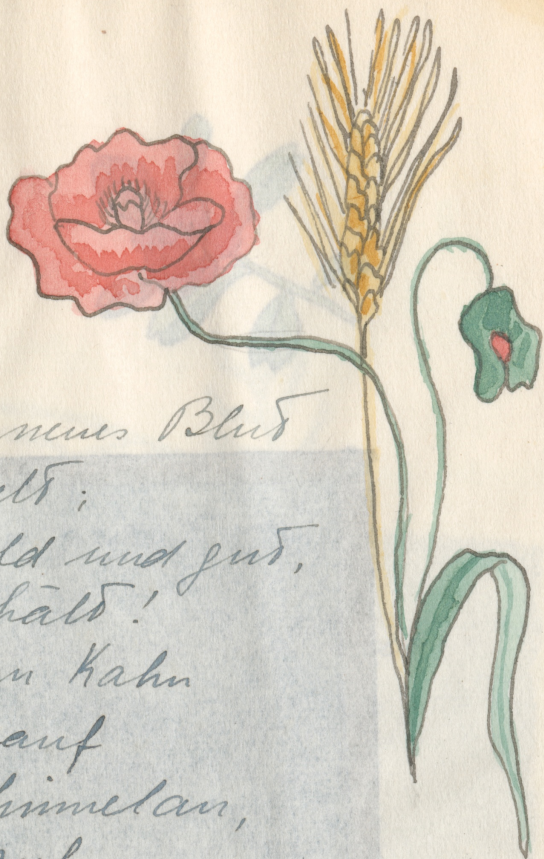 neues Blut
elt;
ld und gut,
hält!
n Kahn
auf
himmelan,